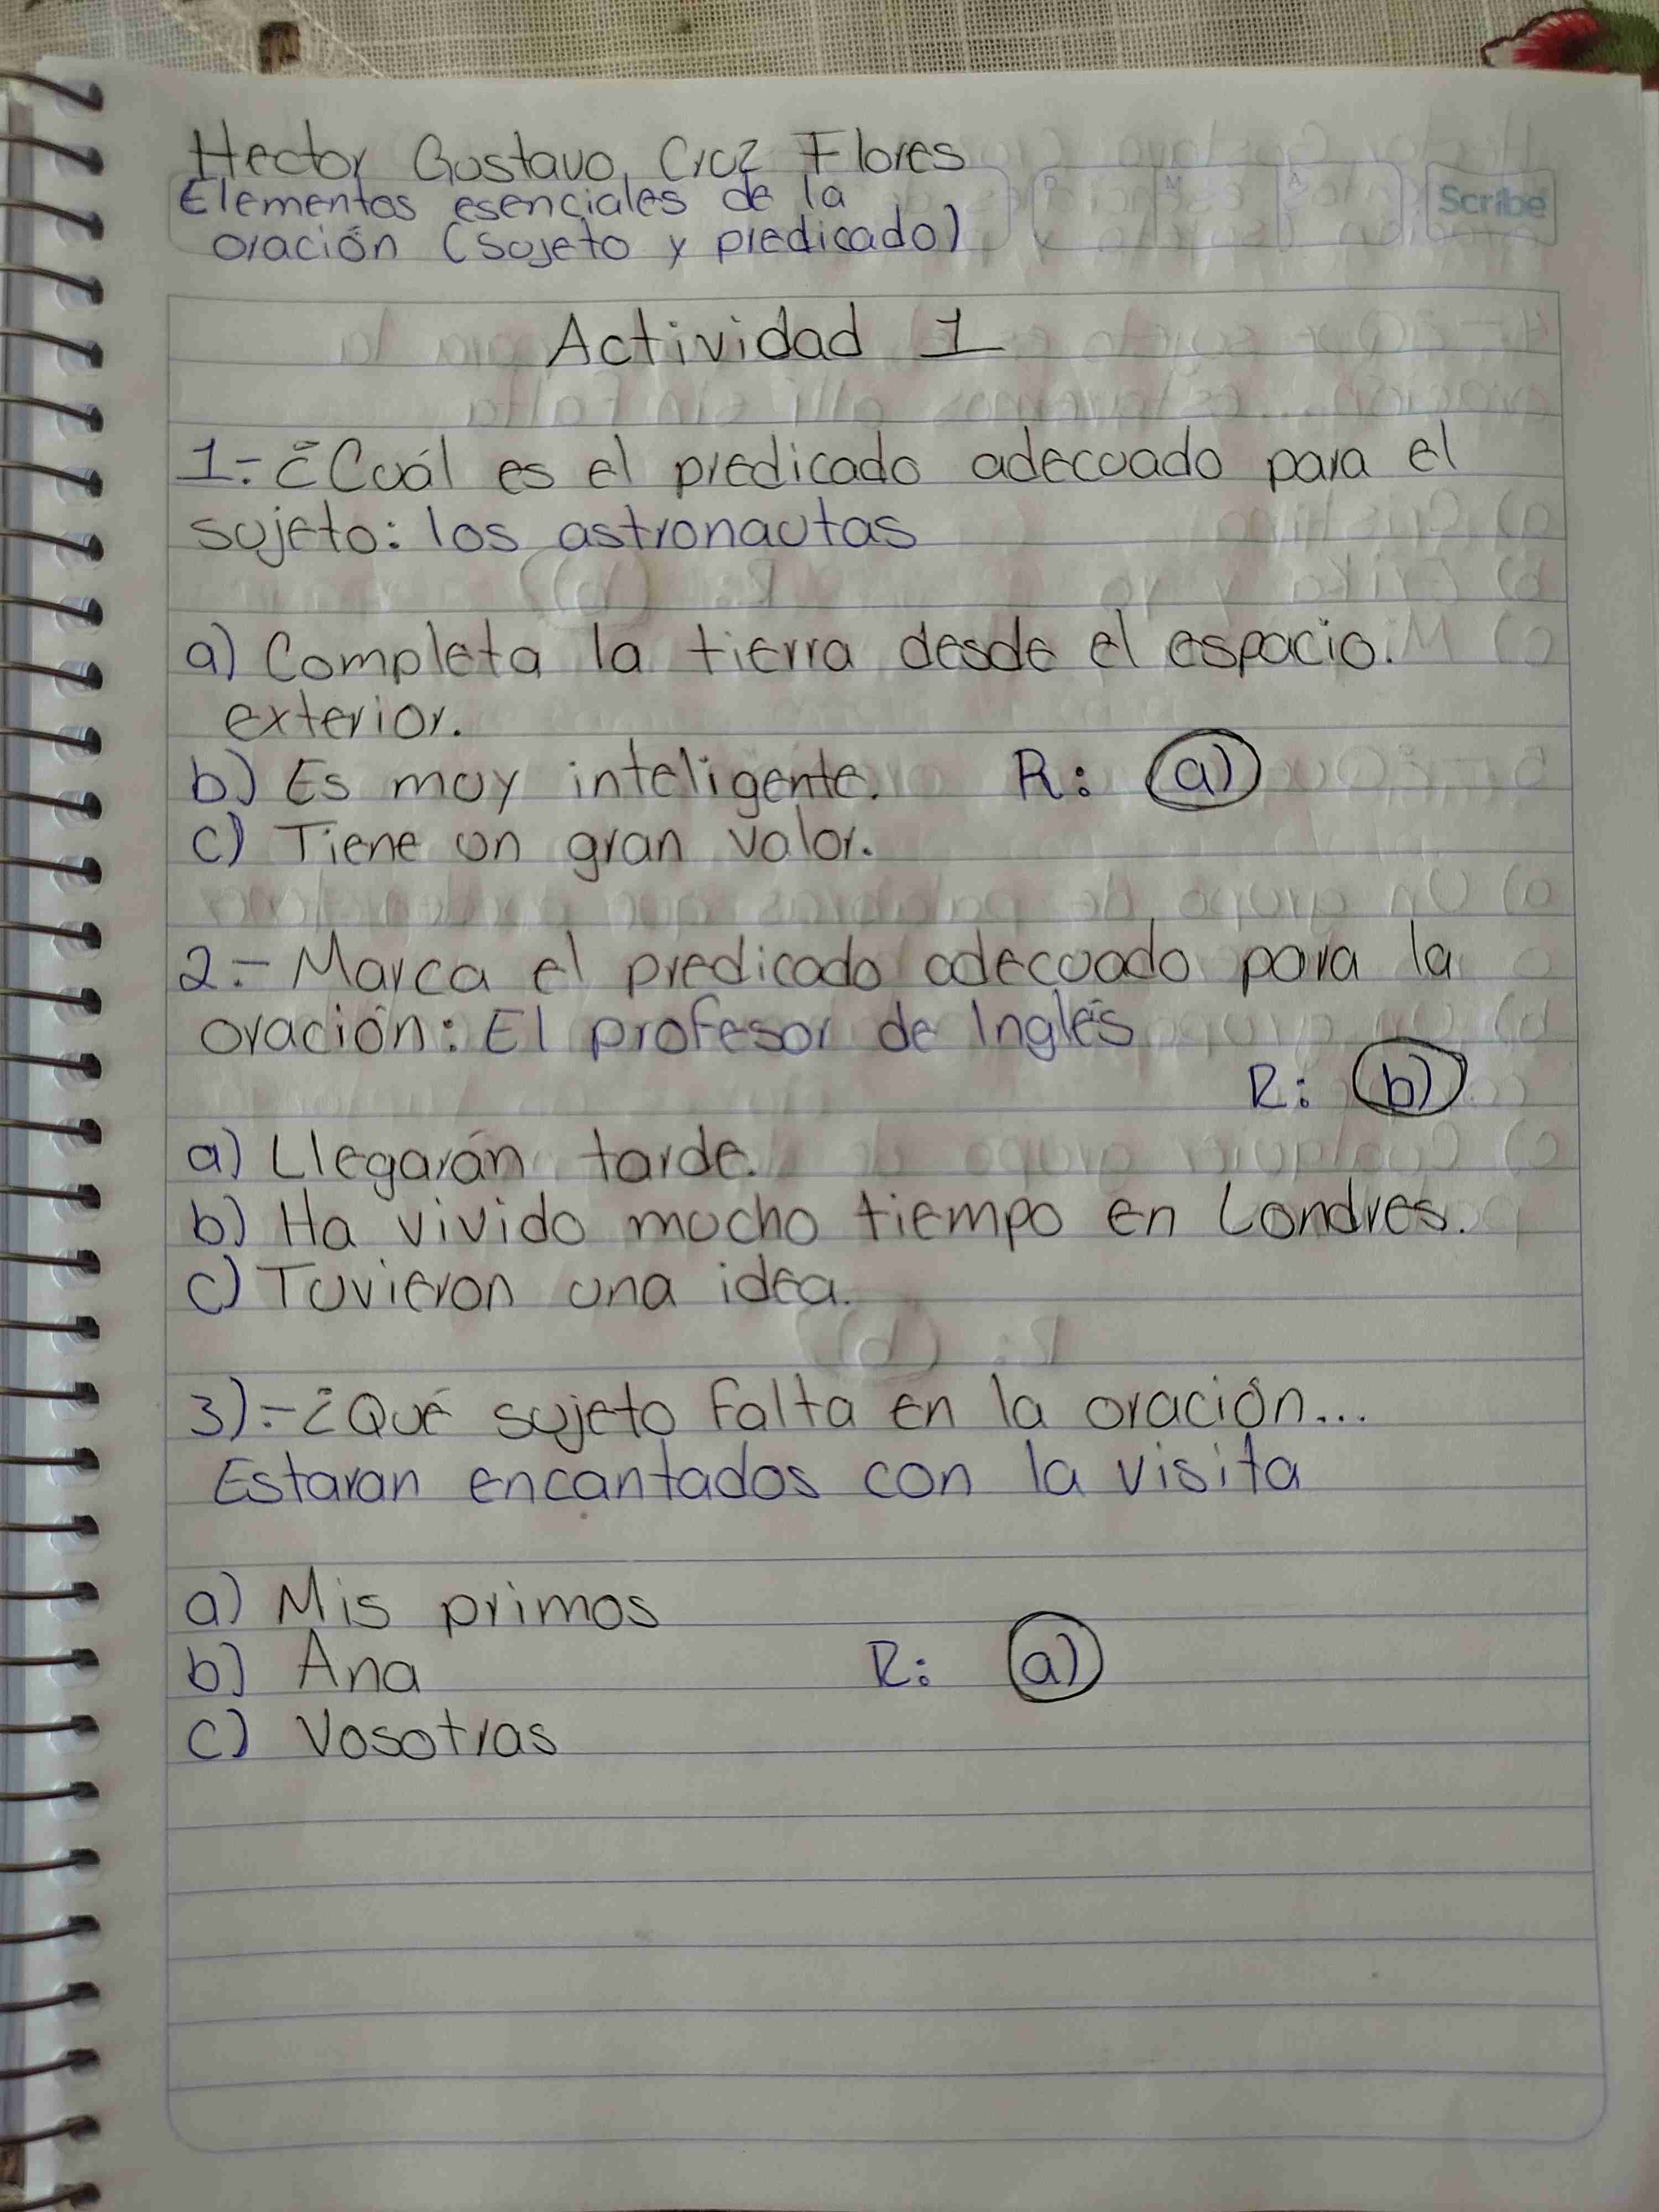 Hector Gustavo Cruz Flores
Elementos esenciales de la
oración (Sujeto y predicado)
Scribe
Actividad 1
1.- ¿Cuál es el predicado adecuado para el
sujeto: los astronautas
a) Completa la tierra desde el espacio.
exterior.
b) Es muy inteligente. R: a)
c) Tiene un gran valor.
2.- Marca el predicado adecuado para la
oración: El profesor de Inglés
R: b)
a) Llegarán tarde.
b) Ha vivido mucho tiempo en Londres.
c) Tuvieron una idea.
3).- ¿Qué sujeto falta en la oración...
Estaran encantados con la visita
a) Mis primos
b) Ana R: a)
c) Vosotras